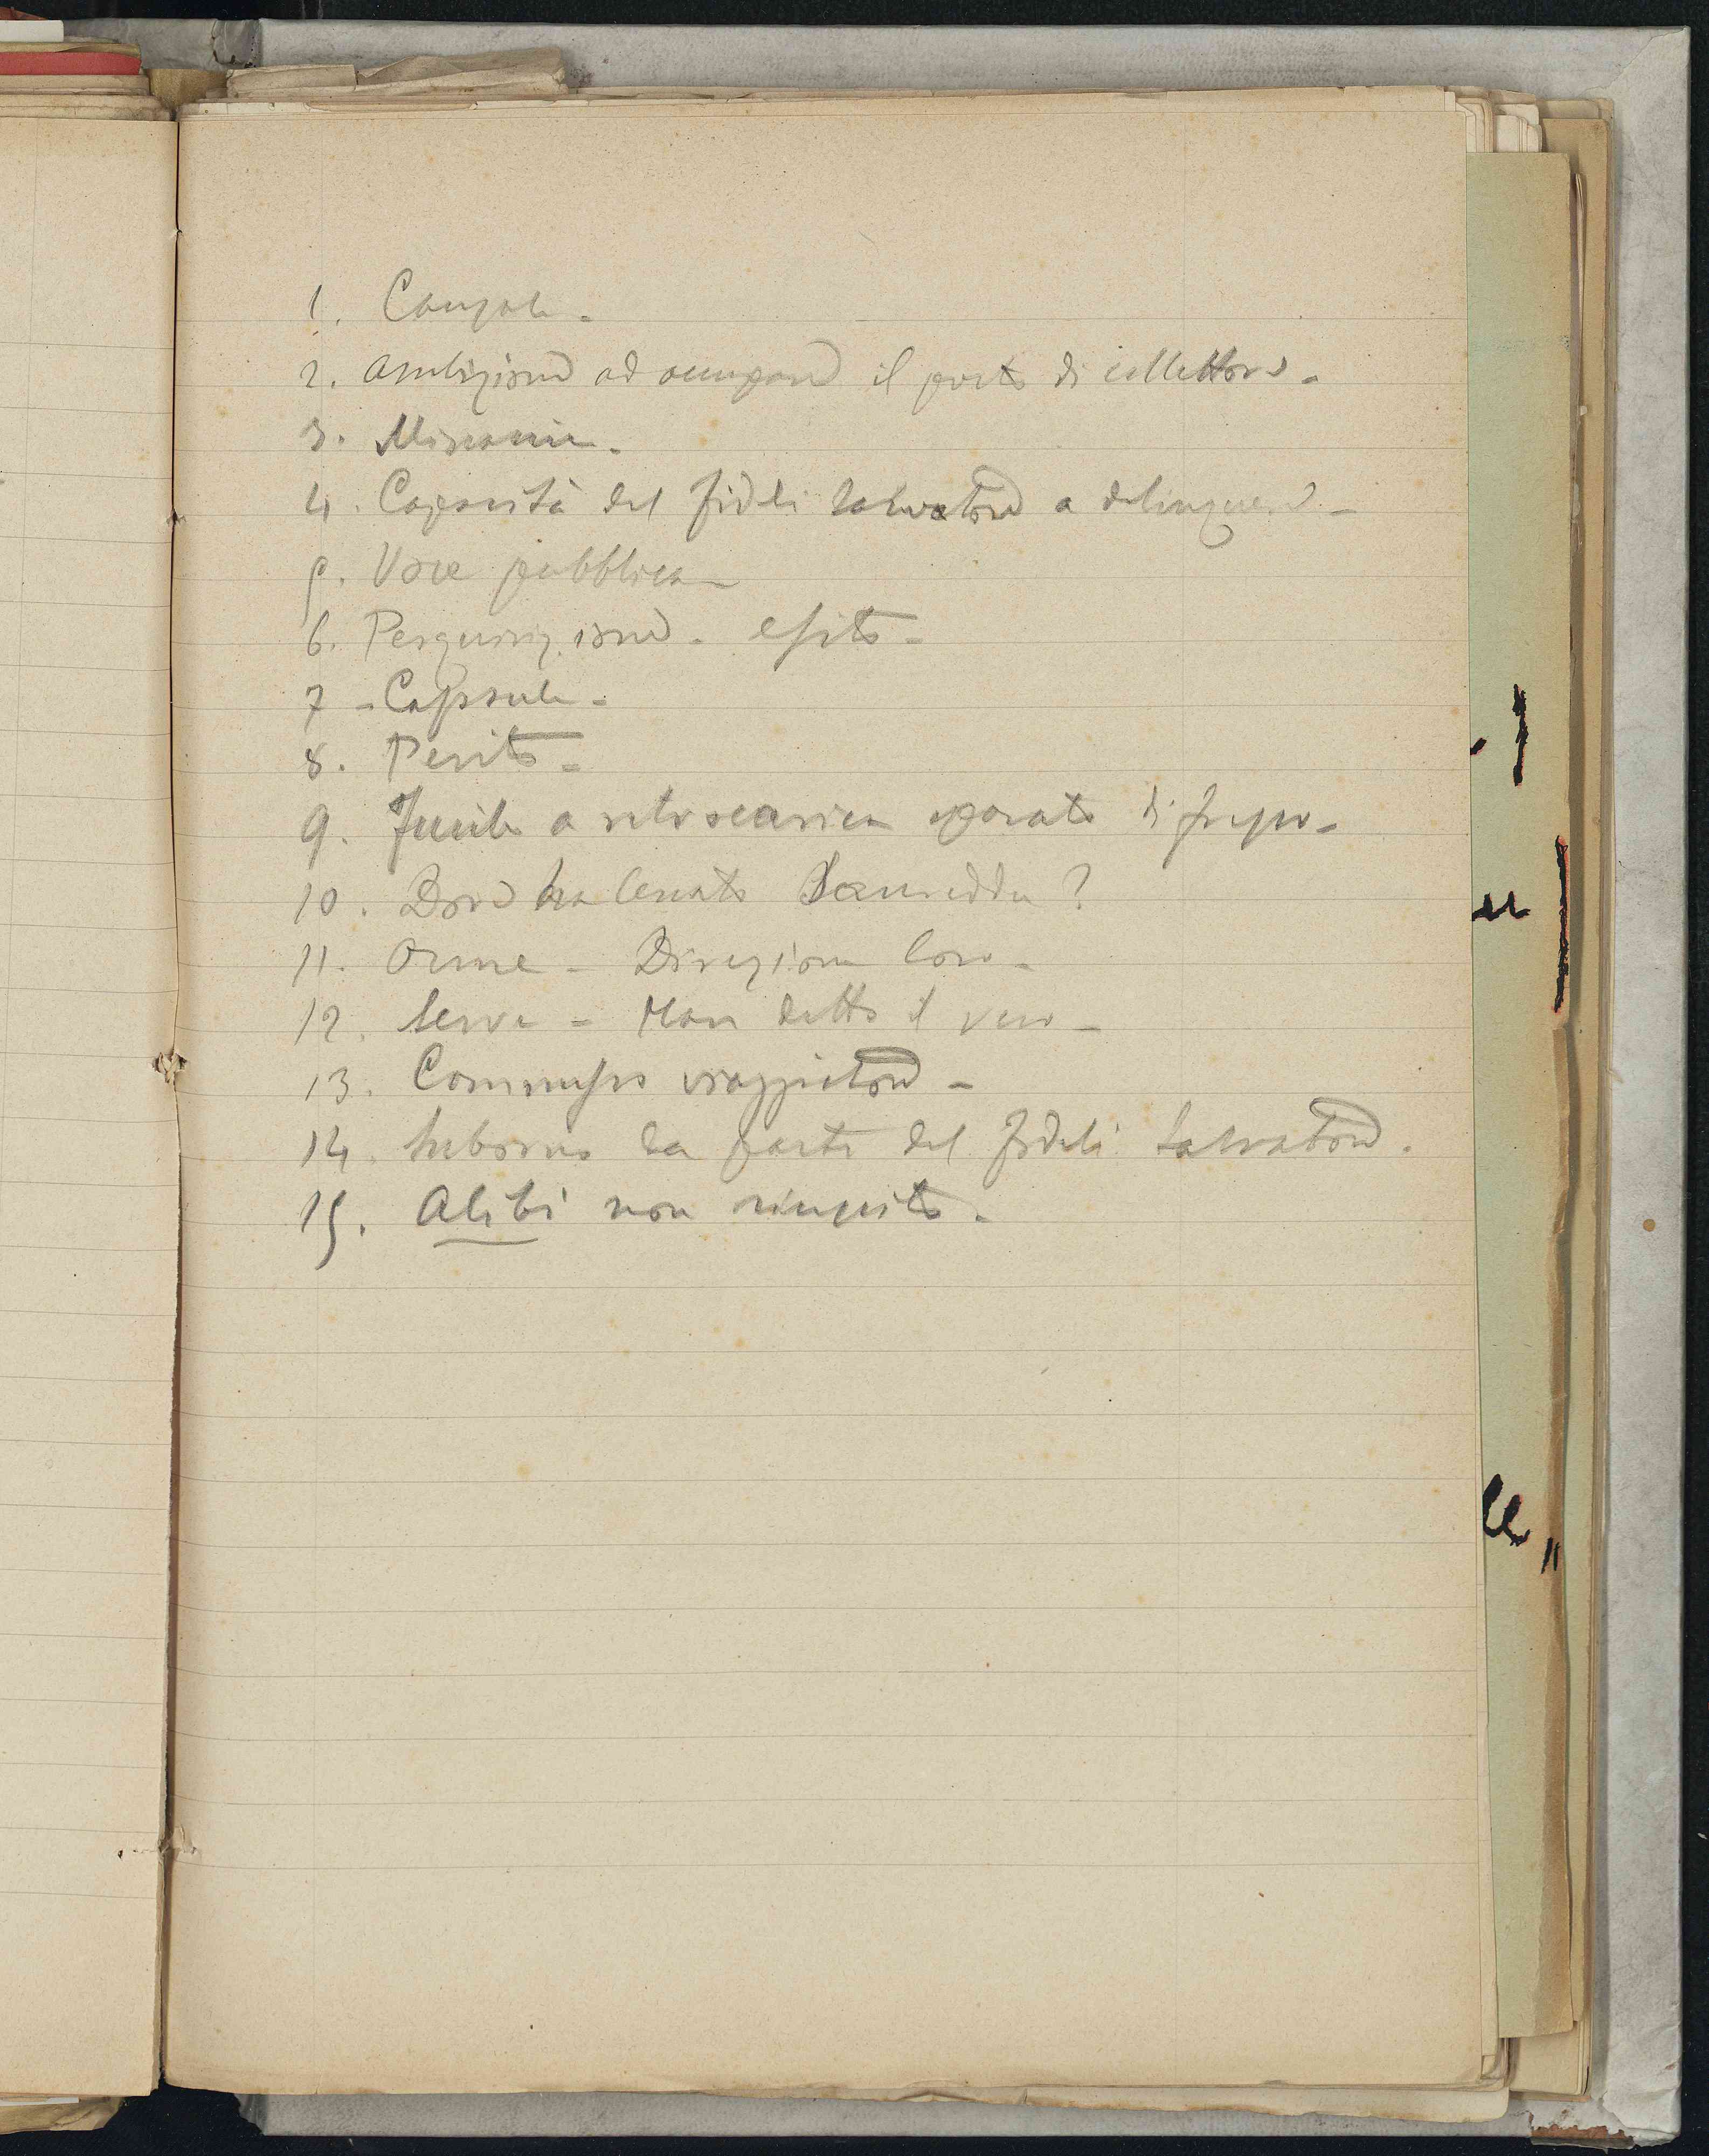 1. Causale -
2. Ambizione ad occupare il posto di collettore -
3. Minaccie -
4. Capacità del Fideli Salvatore a delinquere -
5. Voce pubblica -
6. Perquisizione - esito -
7 - Capsule -
8. Perito -
9. Fucile a retrocarica sparato di fresco -
10. Dove ha cenato Saureddu?
11. Orme - Direzione loro -
12. Serve - Han detto il vero -
13. Commesso viaggiatore -
14. Subornio da parte del Fideli Salvatore.
15. Alibi non riuscito -